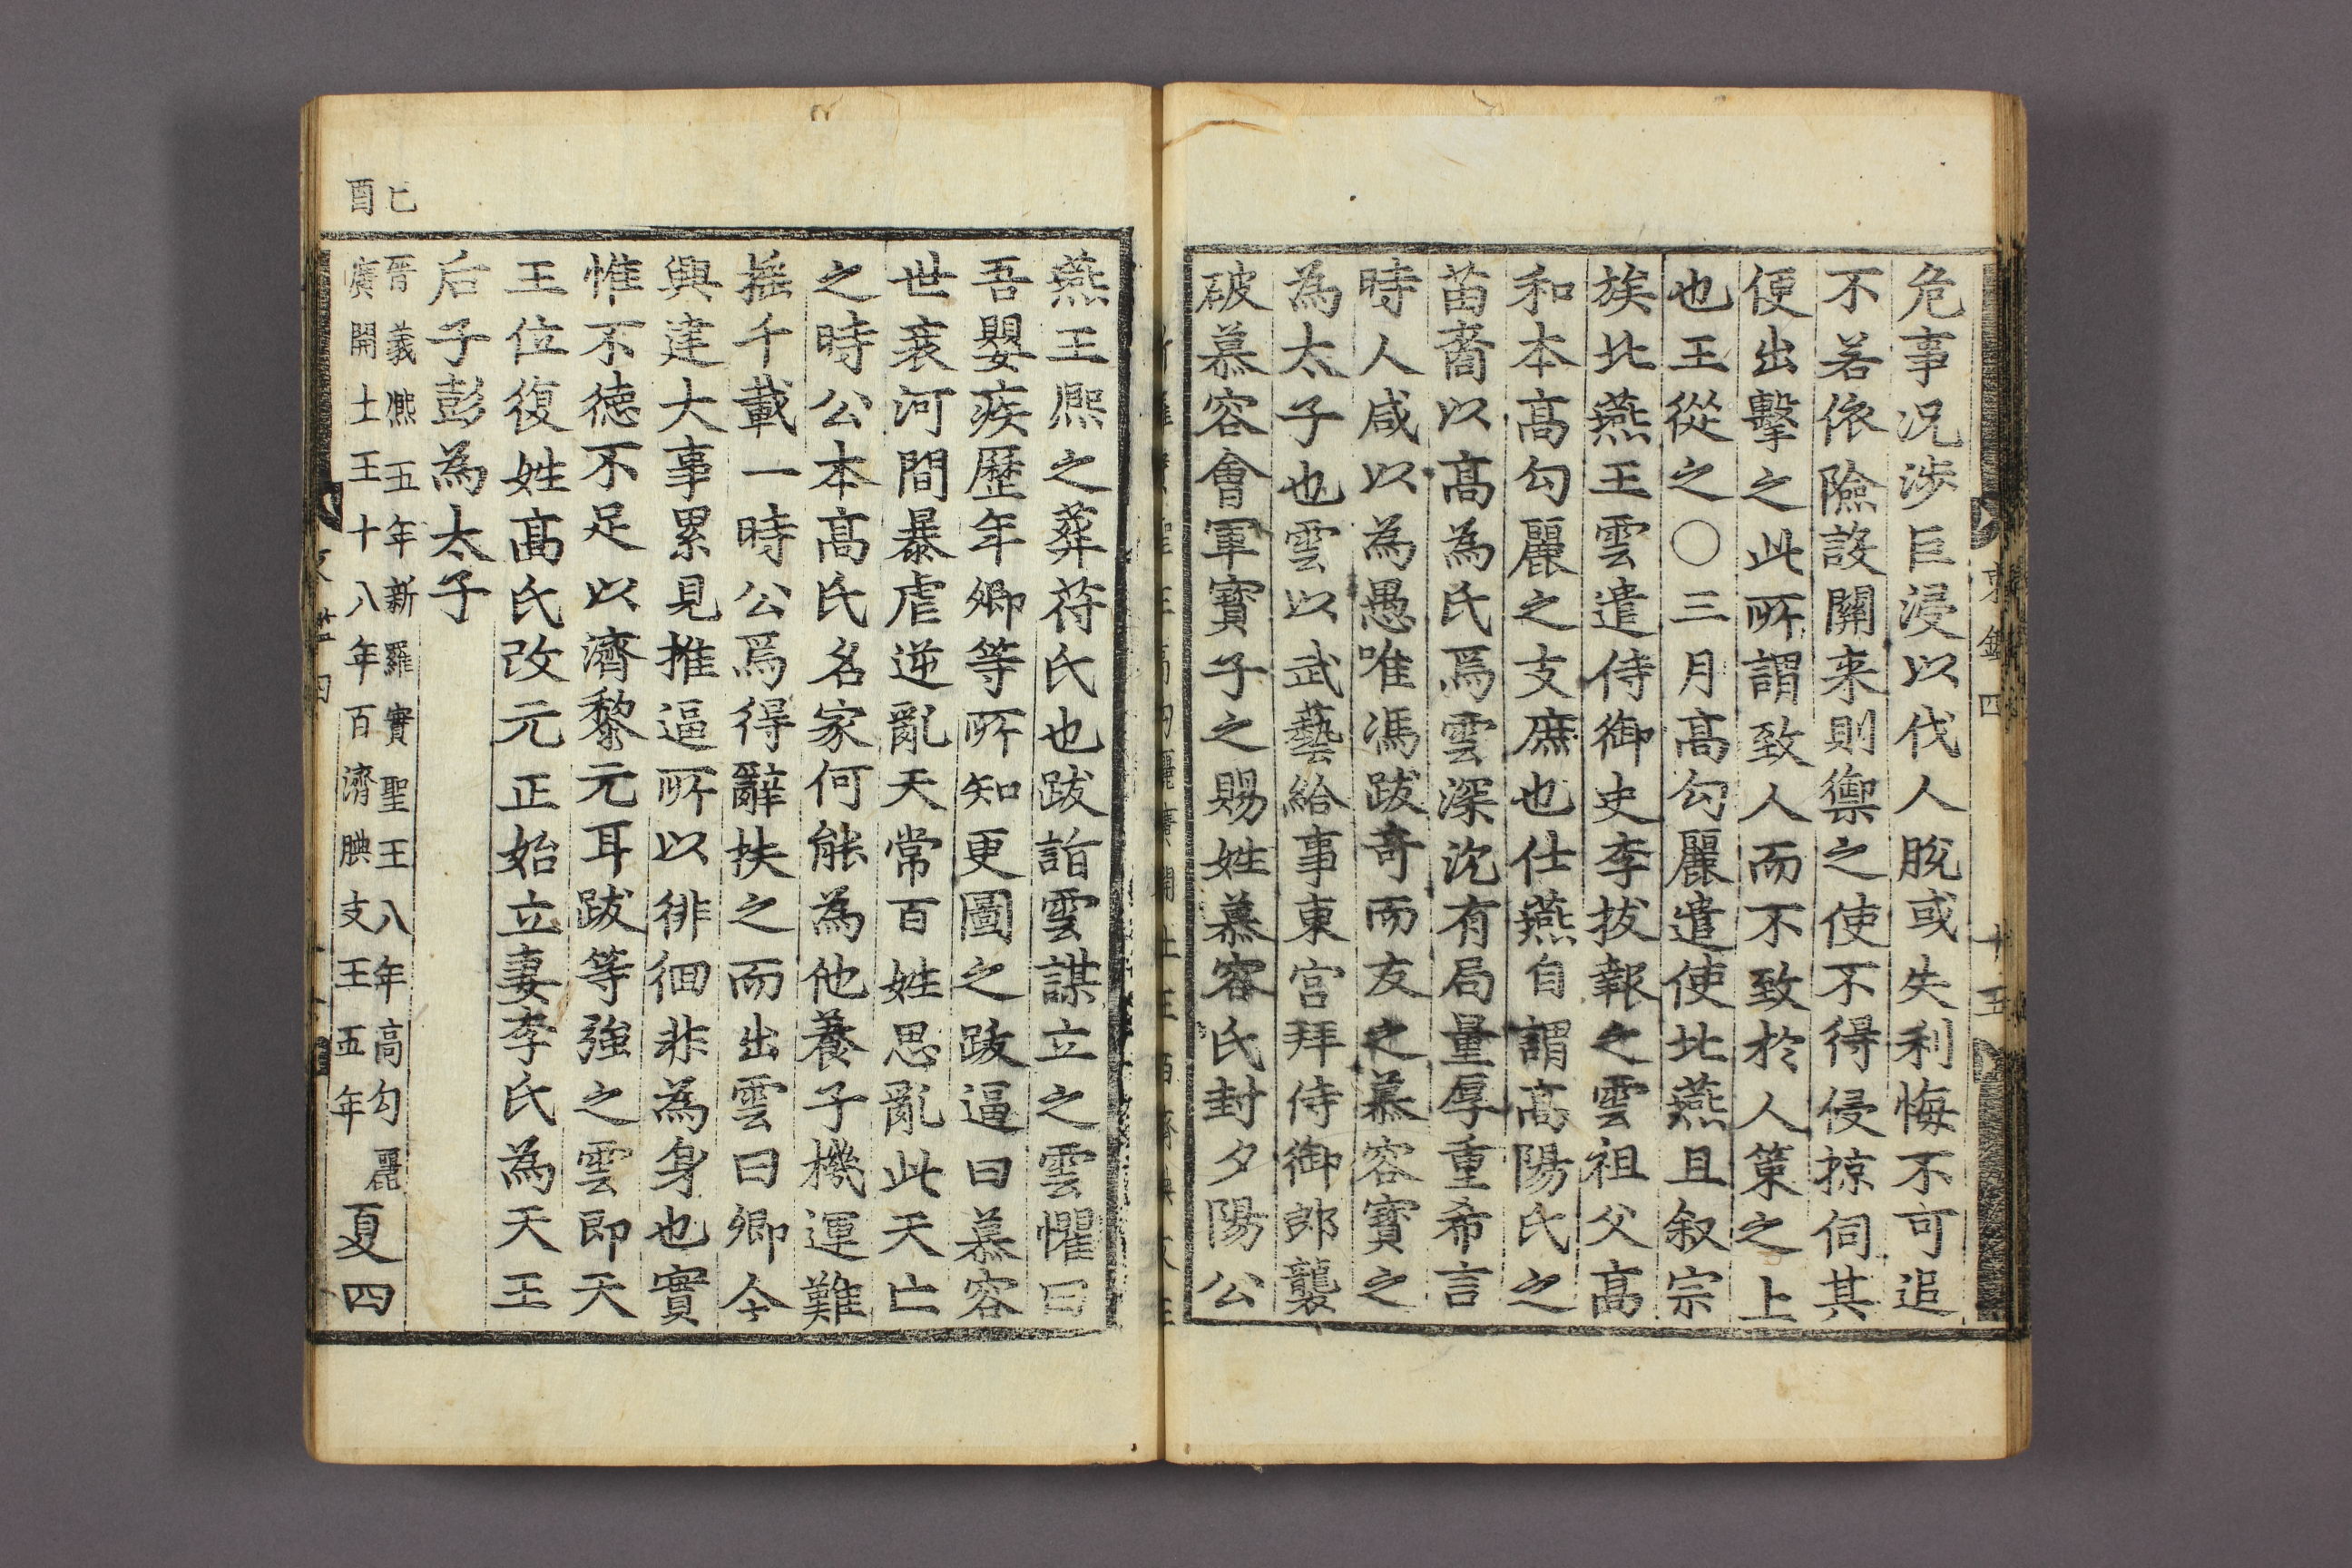 危事况涉巨浸以伐人脫或失利悔不可追
不若依險設關来則禦之使不得侵掠伺其
便出擊之此所謂致人而不致於人策之上
也王從之○三月髙勾麗遣使北燕且叙宗
族北燕王雲遣侍御史李拔報之雲祖父髙
和本髙勾麗之支庶也仕燕自謂髙陽氏之
苗裔以髙為氏焉雲深沈有局量厚重希言
時人咸以為愚唯馮跋竒而友之慕容寳之
為太子也雲以武藝給事東宮拜侍御郎襲
破慕容會軍寳子之賜姓慕容氏封夕陽公
燕王熈之葬苻氏也跋詣雲謀立之雲懼曰
吾嬰疾歷年卿等所知更圖之跋逼曰慕容
世衰河間暴虐逆亂天常百姓思亂此天亡
之時公本髙氏名家何能為他養子機運難
摇千載一時公焉得辭扶之而出雲曰卿今
興建大事累見推逼所以徘徊非為身也實
惟不徳不足以濟黎元耳跋等強之雲即天
王位復姓髙氏改元正始立妻李氏為天王
后子彭為太子
己
酉
晋義熈五年新羅實聖王八年高勾麗
廣開土王十八年百濟腆支王五年
夏四